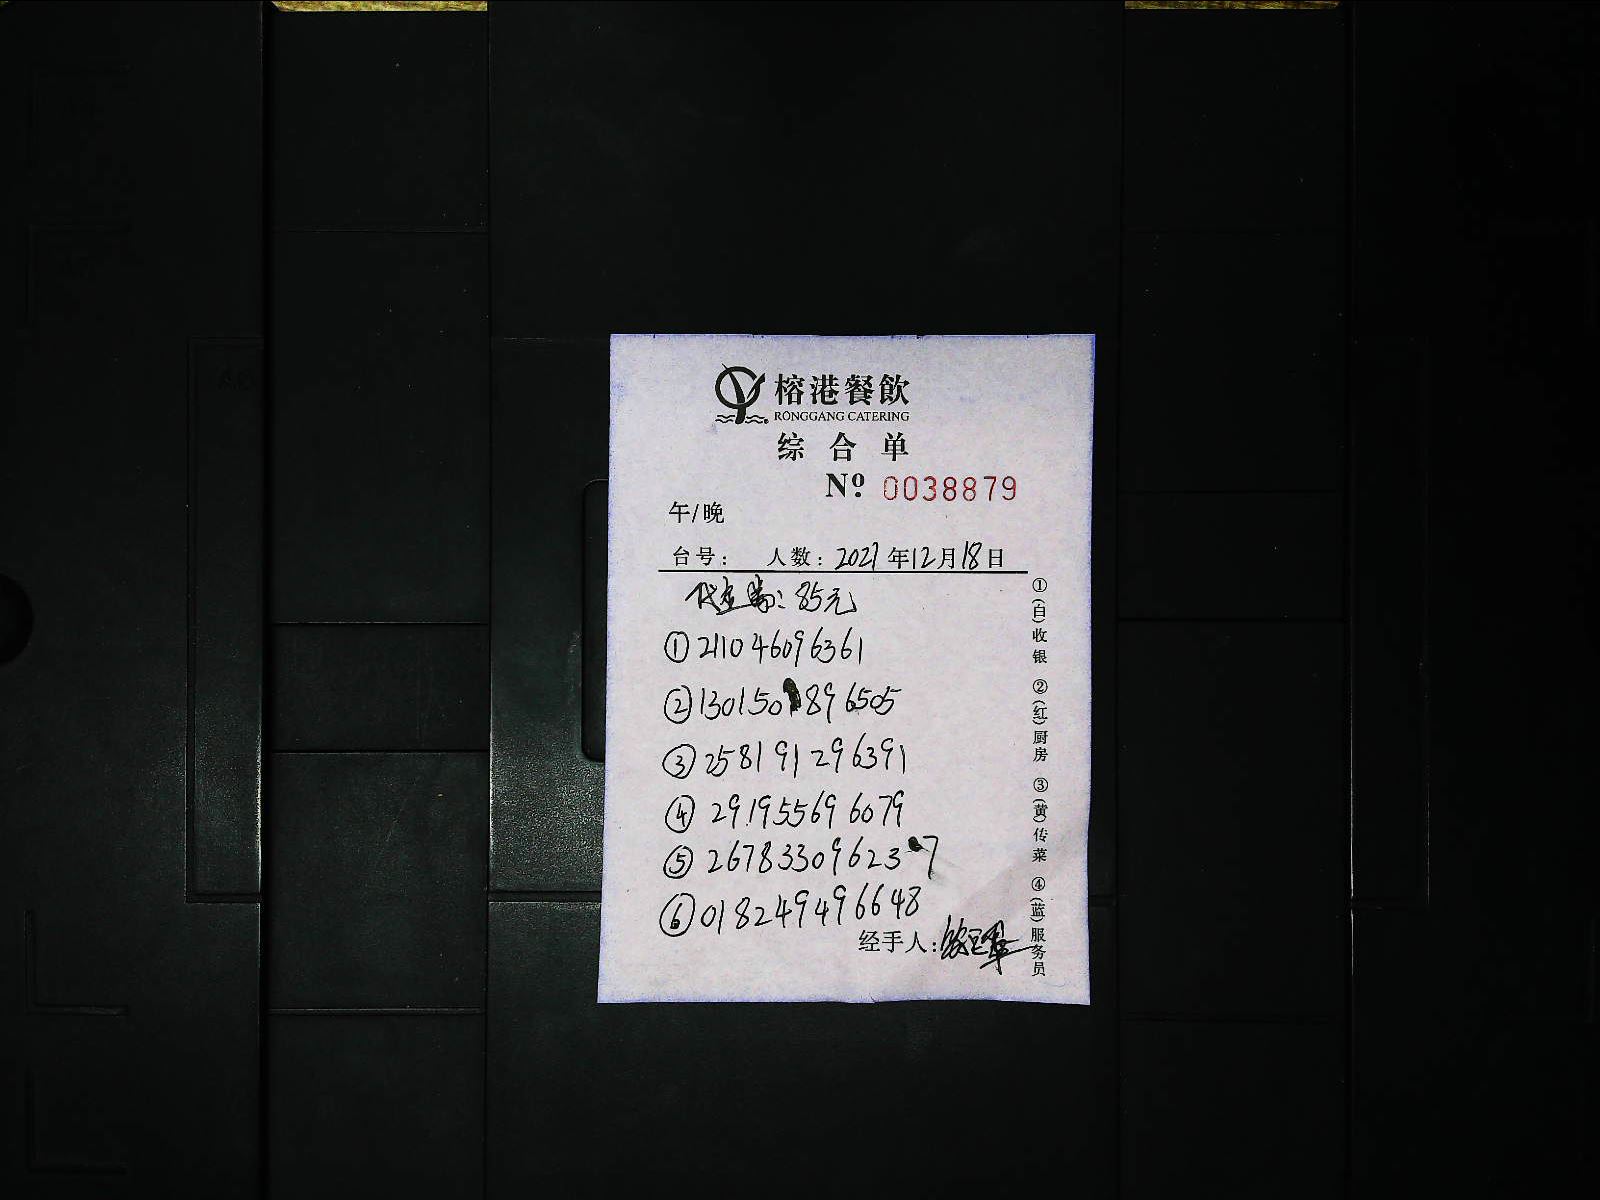 榕港餐飲
RONGGANG CATERING
综合单
Nº 0038879
午/晚
台号： 人数：2021年12月18日
代金券：85元
①211046096361
②1301501896505
③258191296391
④291955696079
⑤267833096237
⑥018249496648
经手人：
①(白)收银 ②(红)厨房 ③(黄)传菜 ④(蓝)服务员